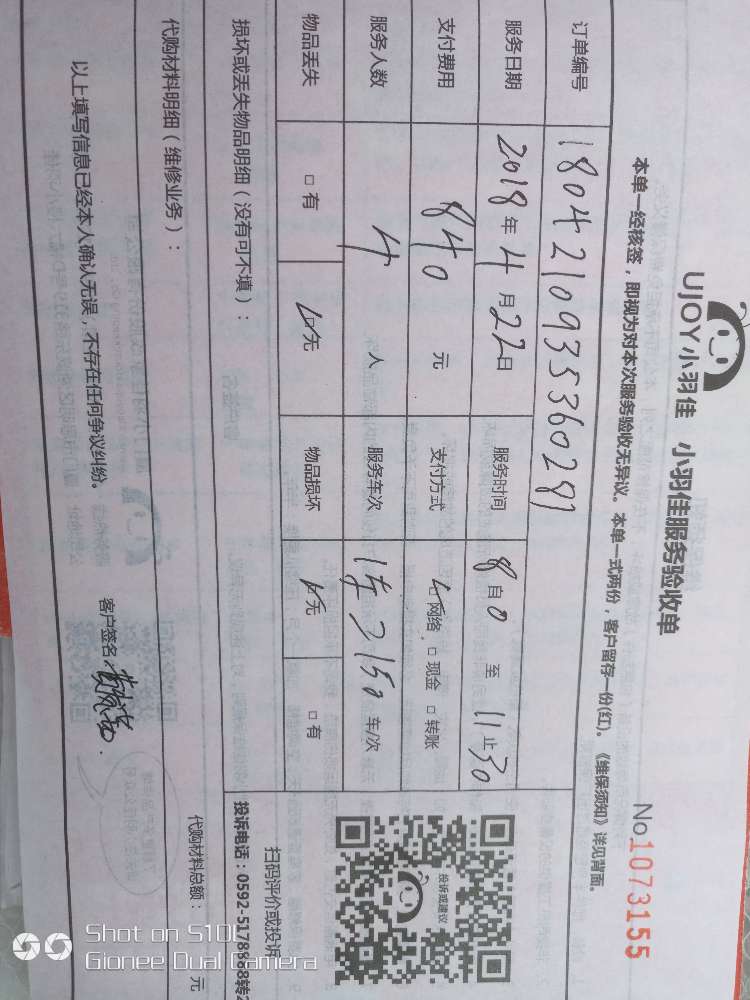 UJOY小羽佳 小羽佳服务验收单
No1073155
本单一经核签，即视为对本次服务验收无异议。本单一式两份，客户留存一份(红)。《维保须知》详见背面。
订单编号 180421093536028
服务日期 2018年4月22日 服务时间 8自0至11止30
支付费用 840元 支付方式 网络 □现金 □转账
服务人数 4人 服务车次 车/次
物品丢失 □有 无 物品损坏 无 □有
损坏或丢失物品明细（没有可不填）：
投诉或建议
扫码评价或投诉
投诉电话：0592-5178888转2
代购材料明细（维修业务）：
代购材料总额： 元
以上填写信息已经本人确认无误，不存在任何争议纠纷。
客户签名：
Shot on S10L
Gionee Dual Camera